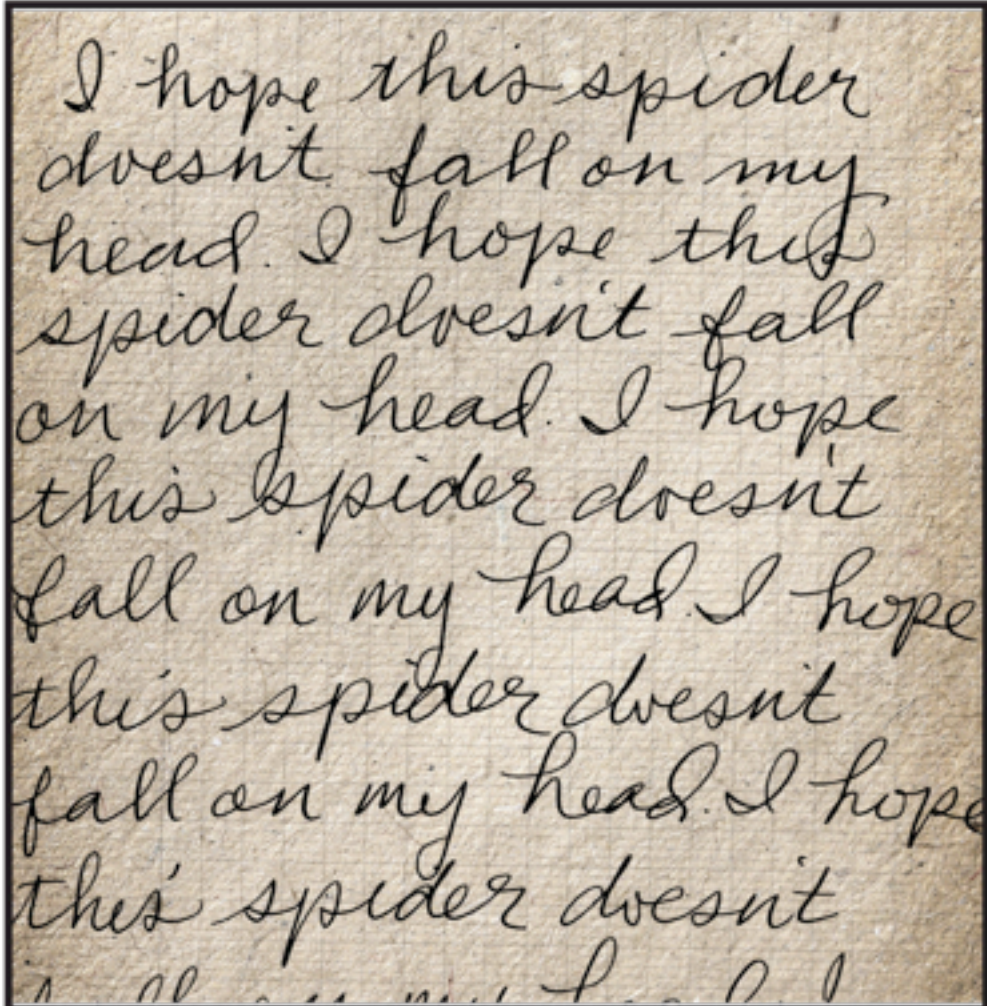 I hope this spider
doesn't fall on my
head. I hope this
spider doesn't fall
on my head. I hope
this spider doesn't
fall on my head. I hope
this spider doesn't
fall on my head. I hope
this spider doesn't
fall on my head